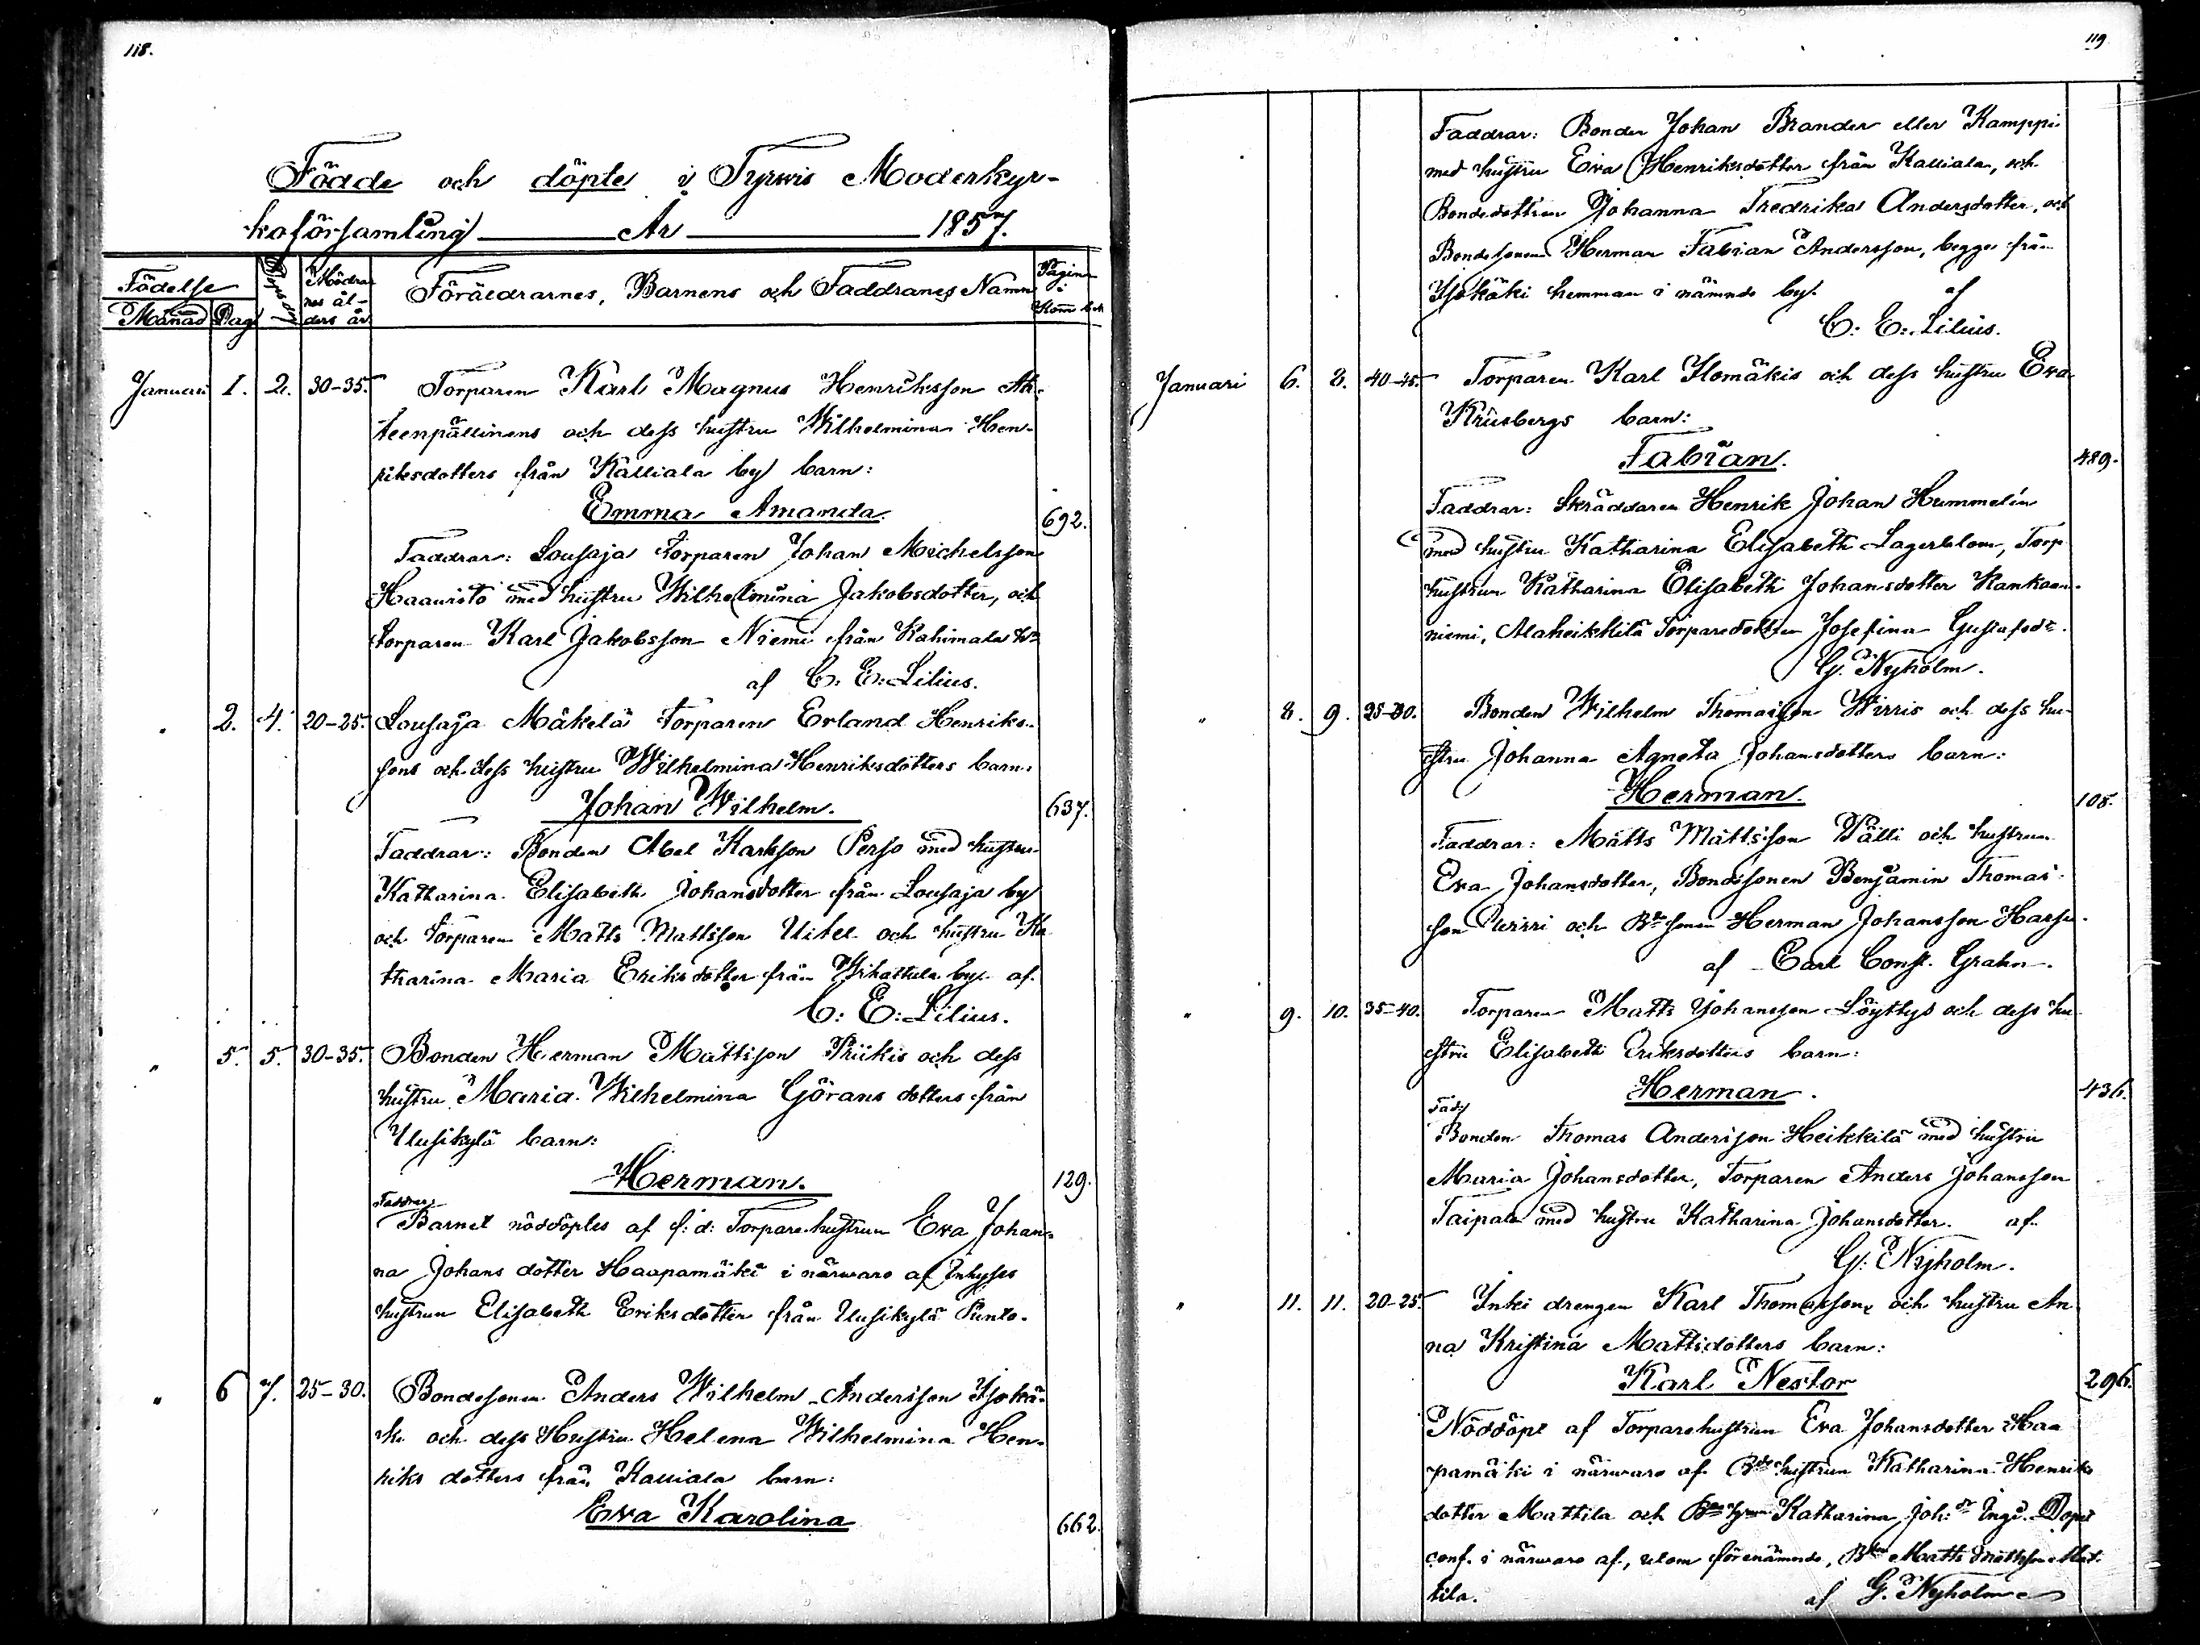 118.
Födde och döpte i Tyrvis Moderkyr-
koförsamling År 1857.
Födelse
Månad Dag
Mödrar
nes ål-
ders år
Föräldrarnes, Barnens och Faddranes Namn
Pagina
i
Januari 1. 2. 30-35. Torparen Karl Magnus Henriksson Ah-
teenpällinens och dess hustru Wilhelmina Hen-
riksdotters från Kalliala by barn:
Emma Amanda. 692.
Faddrar: Lousaja torparen Johan Michelsson
Haavisto med hustru Wilhelmina Jakobsdotter, och
torparen Karl Jakobsson Niemi från
af C. E. Lilius.
" 2. 4. 20-25. Lousaja Mäkelä torparen Erland Henriks-
sons och dess hustru Wilhelmina Henriksdotters barn:
Johan Wilhelm. 637.
Faddrar: Bonden Abel Karlsson Perso med hustru
Katharina Elisabeth Johansdotter från Lousaja by
och torparen Matts Mattsson och hustru Ka
tharina Maria Eriksdotter från by. af
C. E. Lilius.
" 5. 5. 30-35. Bonden Herman Mattsson Priikis och dess
hustru Maria Wilhelmina Görans dotters från
Uusikylä barn:
Herman. 129.
Faddrar
Barnet nöddöptes af f: d: Torpare hustrun Eva Johan-
na Johans dotter Haapamäki i närvaro af Inhyses
hustrun Elisabeth Eriksdotter från Uusikylä
" 6 7. 25-30. Bondesonen Anders Wilhelm Andersson Isokä-
ki och dess Hustru Helena Wilhelmina Hen-
riks dotters från Kalliala barn:
Eva Karolina 662.
119
Faddrar: Bonden Johan Brander eller Kamppi
med hustru Eva Henriksdotter från Kalliala, och
Bondedottren Johanna Fredrika Andersdotter, och
Bondesonen Herman Fabian Andersson, begge från
Isokäki hemman i nämnde by. af
C. E. Lilius.
Januari 6. 8. 40-45. Torparen Karl Ilomäkis och dess hustru Eva
Kriisbergs barn:
Fabian. 489.
Faddrar: Skräddaren Henrik Johan Hummelin
med hustru Katharina Elisabeth Lagerblom, Torp
hustrun Katharina Elisabeth Johansdotter Kankaan-
niemi, Alaheikkilä Torparedotter Josefina Gustafsdr.
G. Nyholm.
" 8. 9. 25-30. Bonden Wilhelm Thomasson Wirris och dess hu-
stru Johanna Agneta Johansdotters barn:
Herman. 108.
Faddrar: Matts Mattsson Pälli och hustrun
Eva Johansdotter, Bondesonen Benjamin Thomas-
son Wirri och Bdesonen Herman Johansson Harju
af Carl Const. Grahn.
" 9. 10. 35-40. Torparen Matts Johansson Löyttys och dess hu
stru Elisabeth Eriksdotters barn:
Herman. 436.
Fad:
Bonden Thomas Andersson Heikkilä med hustru
Maria Johansdotter, Torparen Anders Johansson
Taipale med hustru Katharina Johansdotter. af
G. Nyholm.
" 11. 11. 20-25. Inki drengen Karl Thomassons och hustru An
na Kristina Mattsdotters barn:
Karl Nestor 296.
Nöddöpt af Torparehustrun Eva Johansdotter Haa
pamäki i närvaro af Bde hustrun Katharina Henriks
dotter Mattila och Katharina Joh: dr Ingi. Dopet
conf. i närvaro af, utom förenämnde, Bden Matts Mattsson Mat-
tila. af G. Nyholm